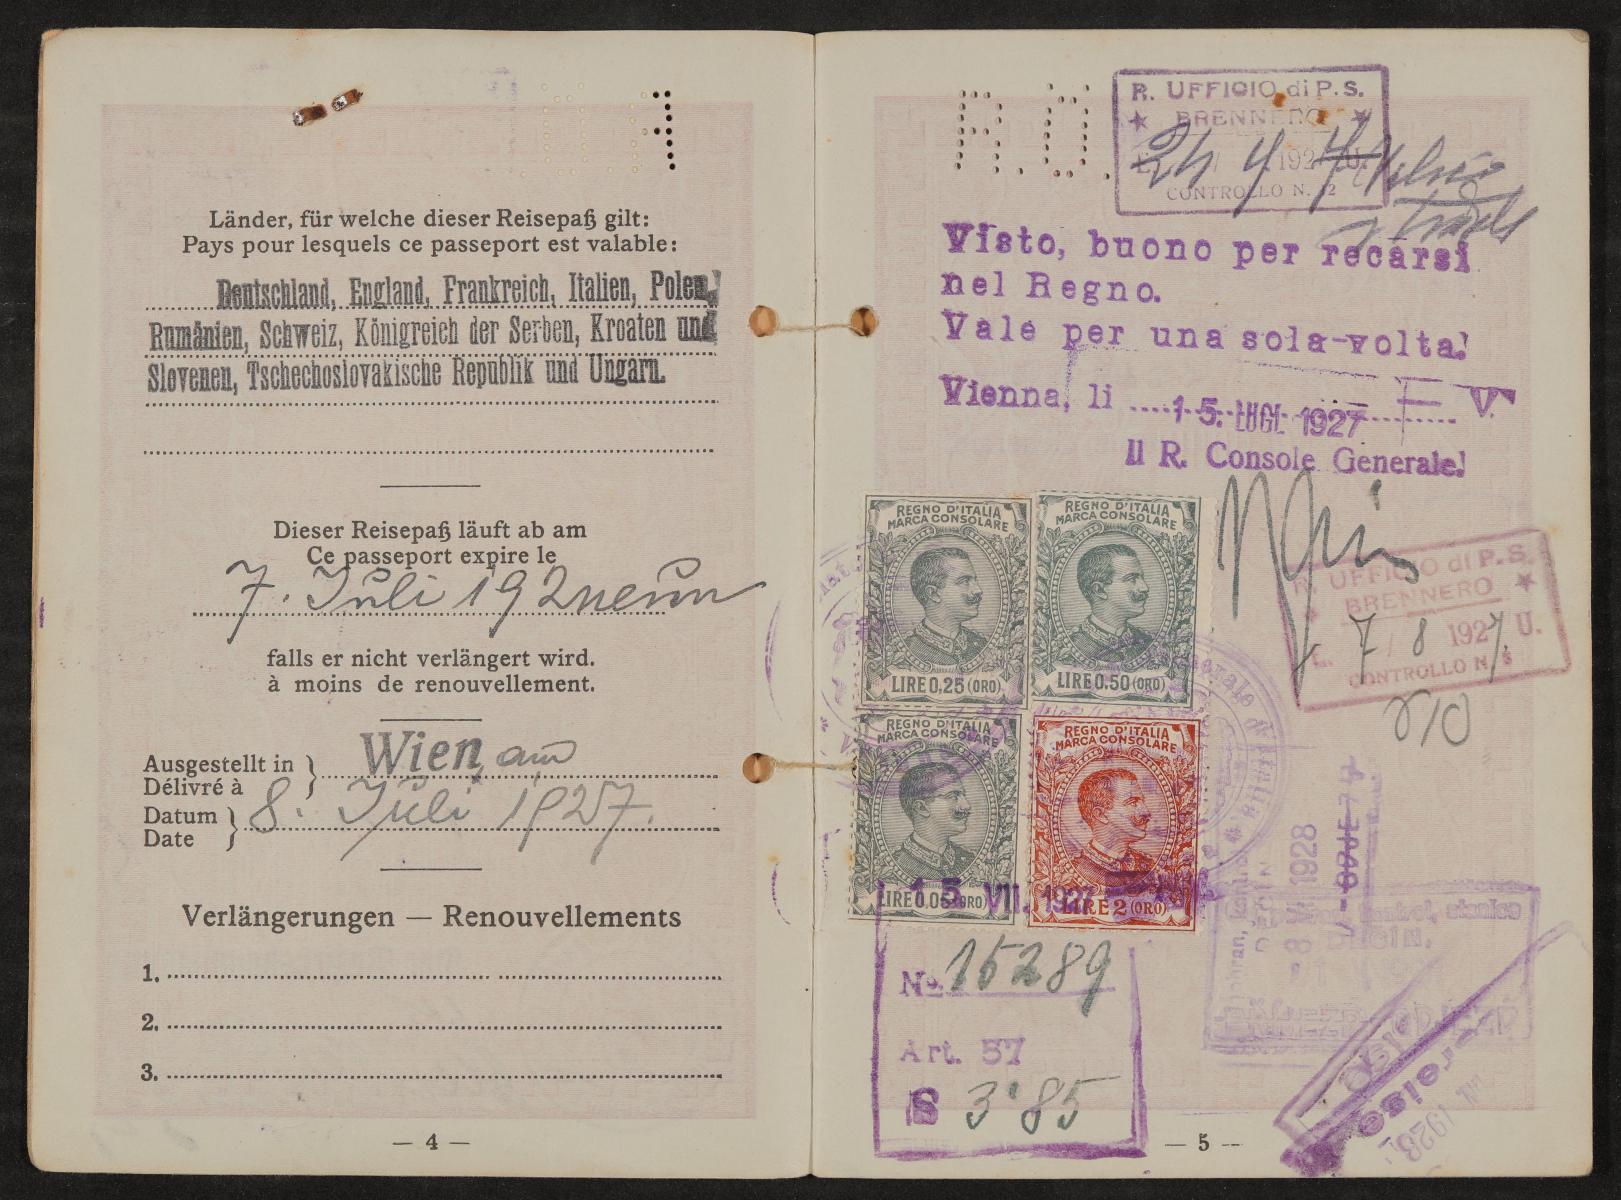 Länder, für welche dieser Reisepaß gilt:
Pays pour lesquels ce passeport est valable:
Deutschland, England, Frankreich, Italien, Polen,
Rumänien, Schweiz, Königreich der Serben, Kroaten und
Slovenen, Tschechoslovakische Republik und Ungarn.
Dieser Reisepaß läuft ab am
Ce passeport expire le
7. Juli 192neun
falls er nicht verlängert wird.
à moins de renouvellement.
Ausgestellt in } Wien, am
Délivré à
Datum } 8. Juli 1927.
Date
Verlängerungen — Renouvellements
1.
2.
3.
— 4 —
R. U.
R. UFFICIO di P.S.
★ BRENNERO ★
24 4 1927 U.
CONTROLLO N. 12
Visto, buono per recarsi
nel Regno.
Vale per una sola volta.
Vienna, li 15. LUGL 1927 V.
Il R. Console Generale.
REGNO D'ITALIA
MARCA CONSOLARE
LIRE 0,25 (ORO)
REGNO D'ITALIA
MARCA CONSOLARE
LIRE 0.50 (ORO)
R. UFFICIO di P.S.
★ BRENNERO ★
E. 7/8 1927. U.
CONTROLLO N.
REGNO D'ITALIA
MARCA CONSOLARE
LIRE 0,05 (ORO)
REGNO D'ITALIA
MARCA CONSOLARE
LIRE 2 (ORO)
15 VII. 1927
No. 15289
Art. 57
S 3'85
8 1928
DĚČÍN.
1928
— 5 —